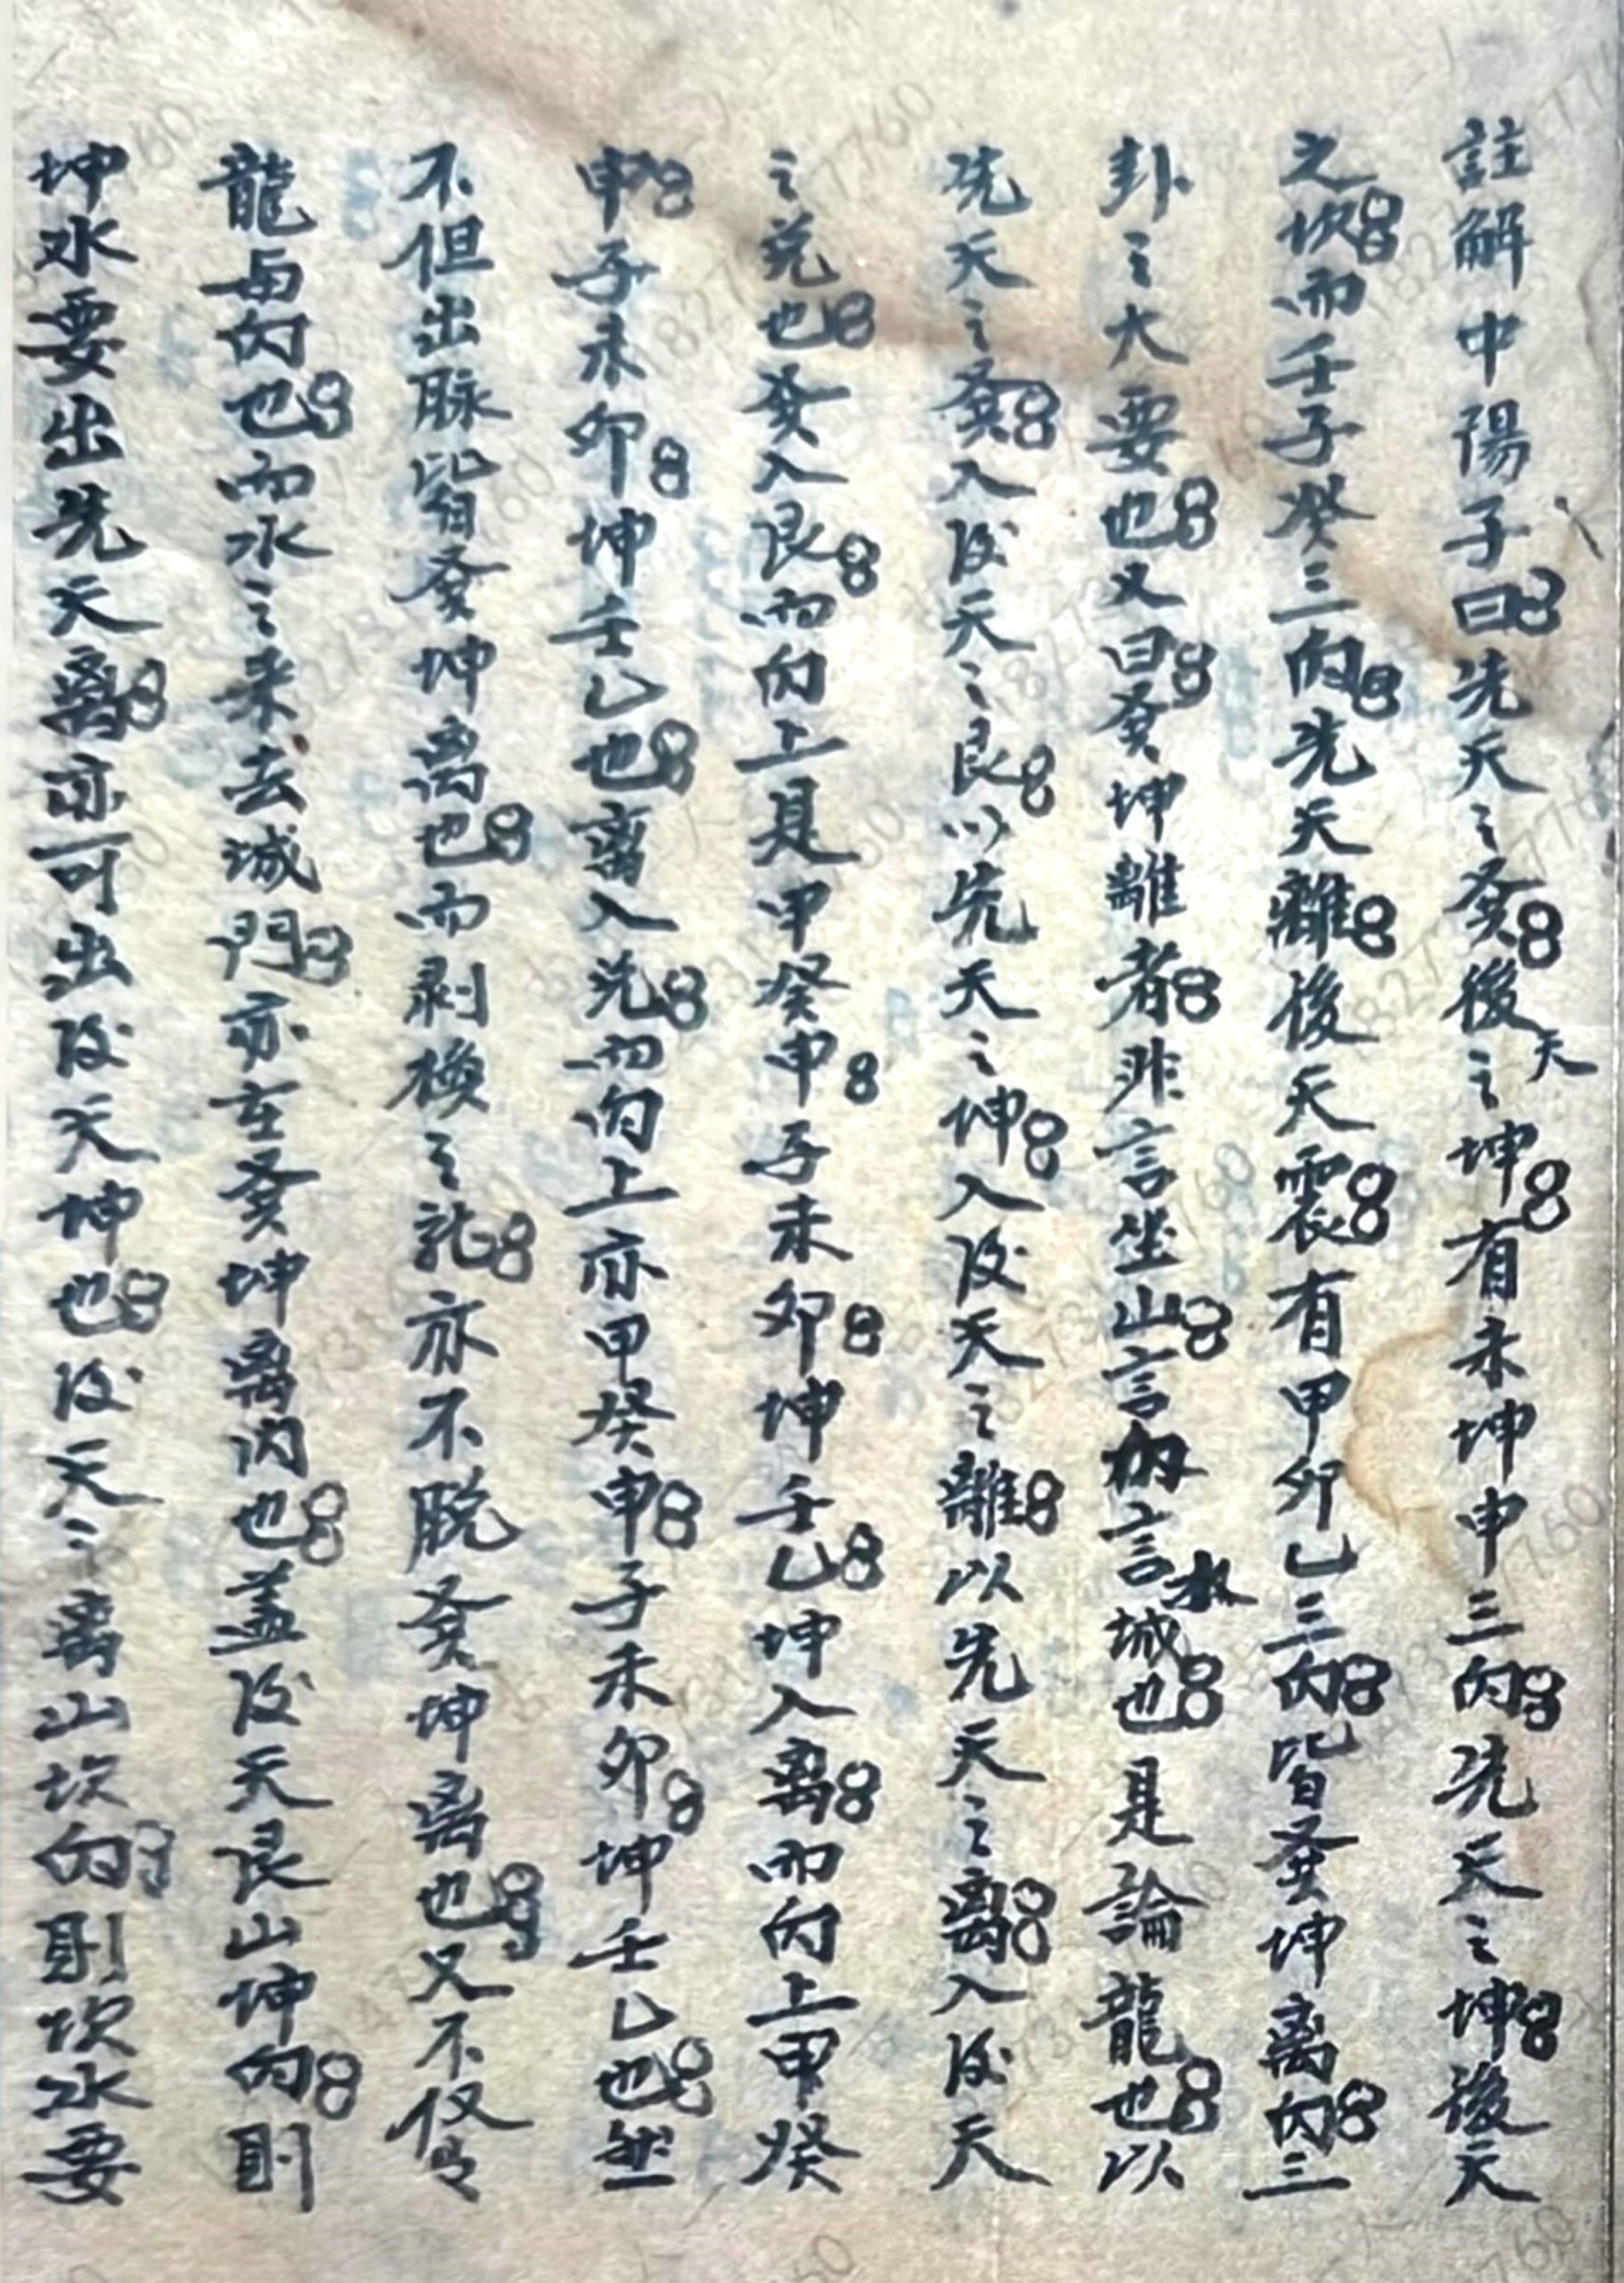 註解中陽子曰先天之巽後天之坤有未坤申三向先天之坤後天
之坎而壬子癸三向先天離後天震有甲卯乙三向皆巽坤离向三
卦之大要也又曰巽坤離者非言坐山言向言城也是論龍也以
先天之巽入后天之艮以先天之坤入后天之離以先天之离入后天
之兑也巽入艮而向上是甲癸申子未卯坤壬乙坤入离而向上甲癸
申子未卯坤壬乙也离入兑而向上亦甲癸申子未卯坤壬乙也然
不但出脉皆巽坤离也而剥換之龍亦不脱巽坤离也又不仅
龍与向也而水之来去城門亦在巽坤离内也盖后天艮山坤向則
坤水要出先天离亦可出后天坤也后天之离山坎向則坎水要